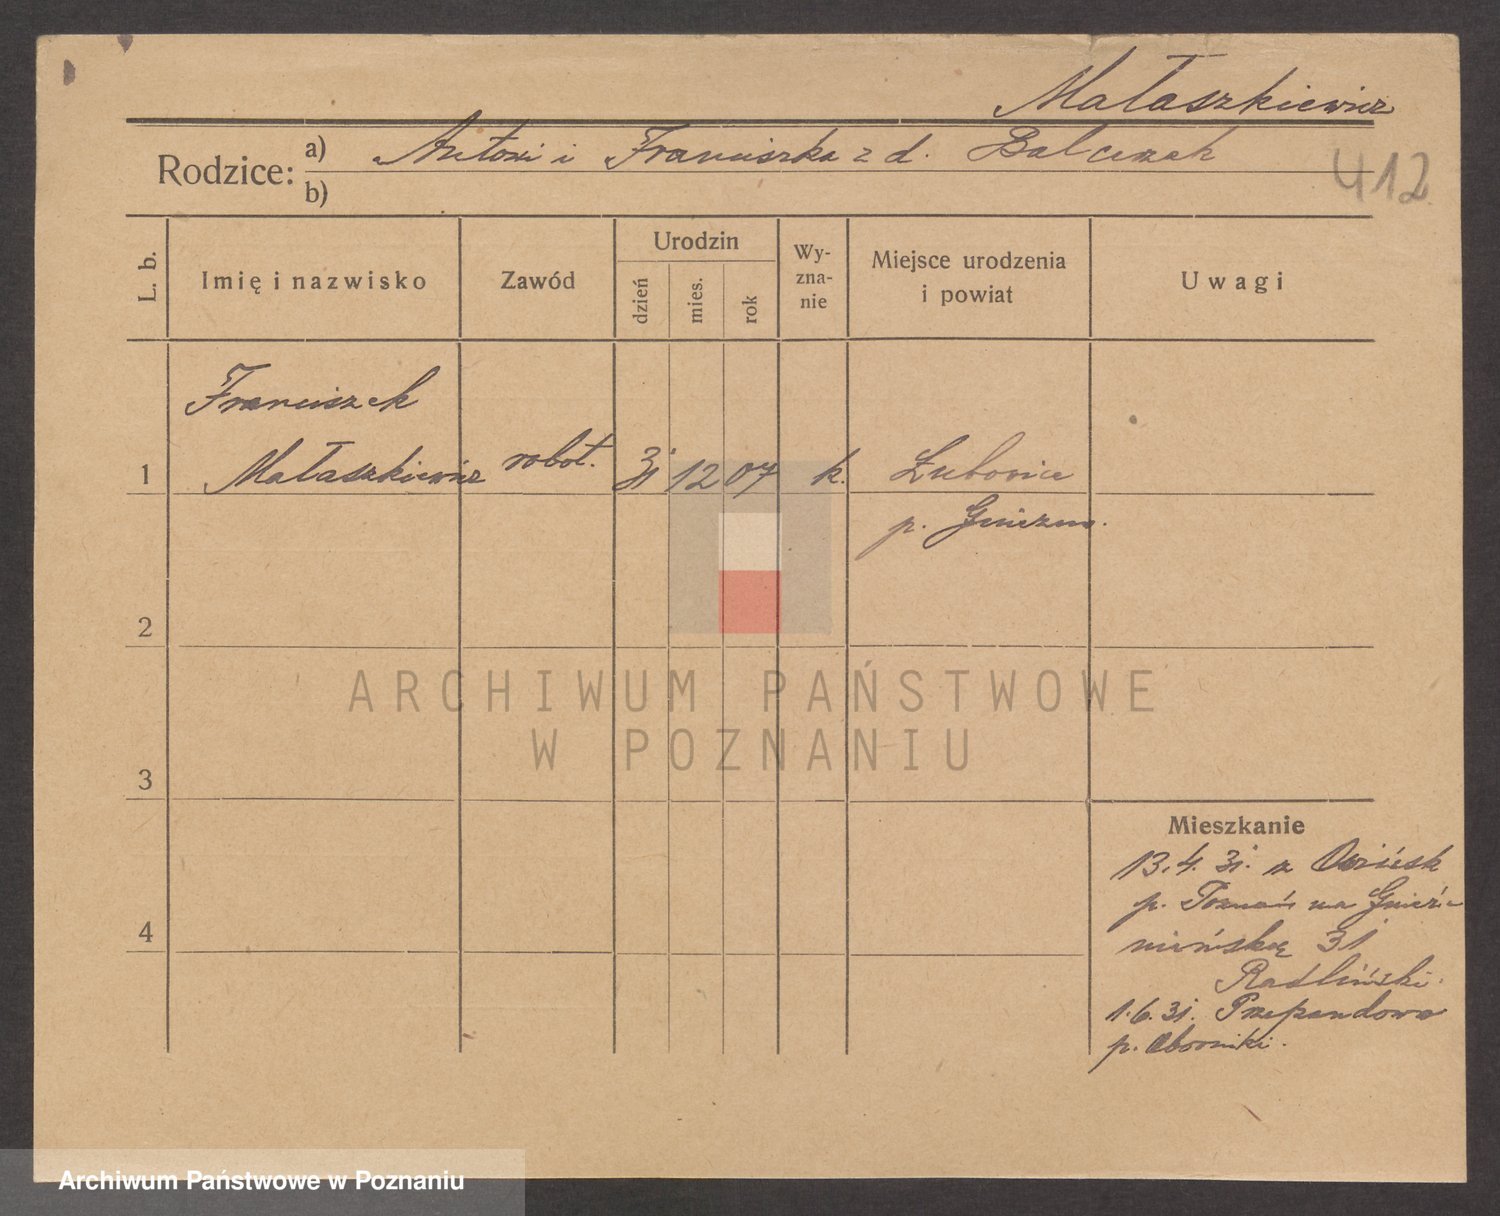 Małaszkiewicz
Rodzice: a) Antoni i Franciszka z d. Balcerzak
b)
412
L. b.
Imię i nazwisko
Zawód
Urodzin
dzień
mies.
rok
Wy-
zna-
nie
Miejsce urodzenia
i powiat
Uwagi
Franciszek
1 Małaszkiewicz robot. 31 12 07 k. Łubowice
p. Gniezno.
2
3
4
Mieszkanie
13.4.31. z
p. Poznań na Gnieź-
nieńską 31
Radliński.
1.6.31. Przependowo
p. Oborniki.
ARCHIWUM PAŃSTWOWE
W POZNANIU
Archiwum Państwowe w Poznaniu